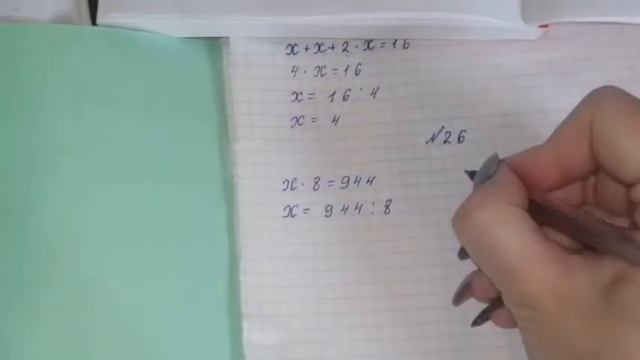 x+x+2·x=16
4·x=16
x= 16:4
x= 4
№26
x·8=944
x= 944:8